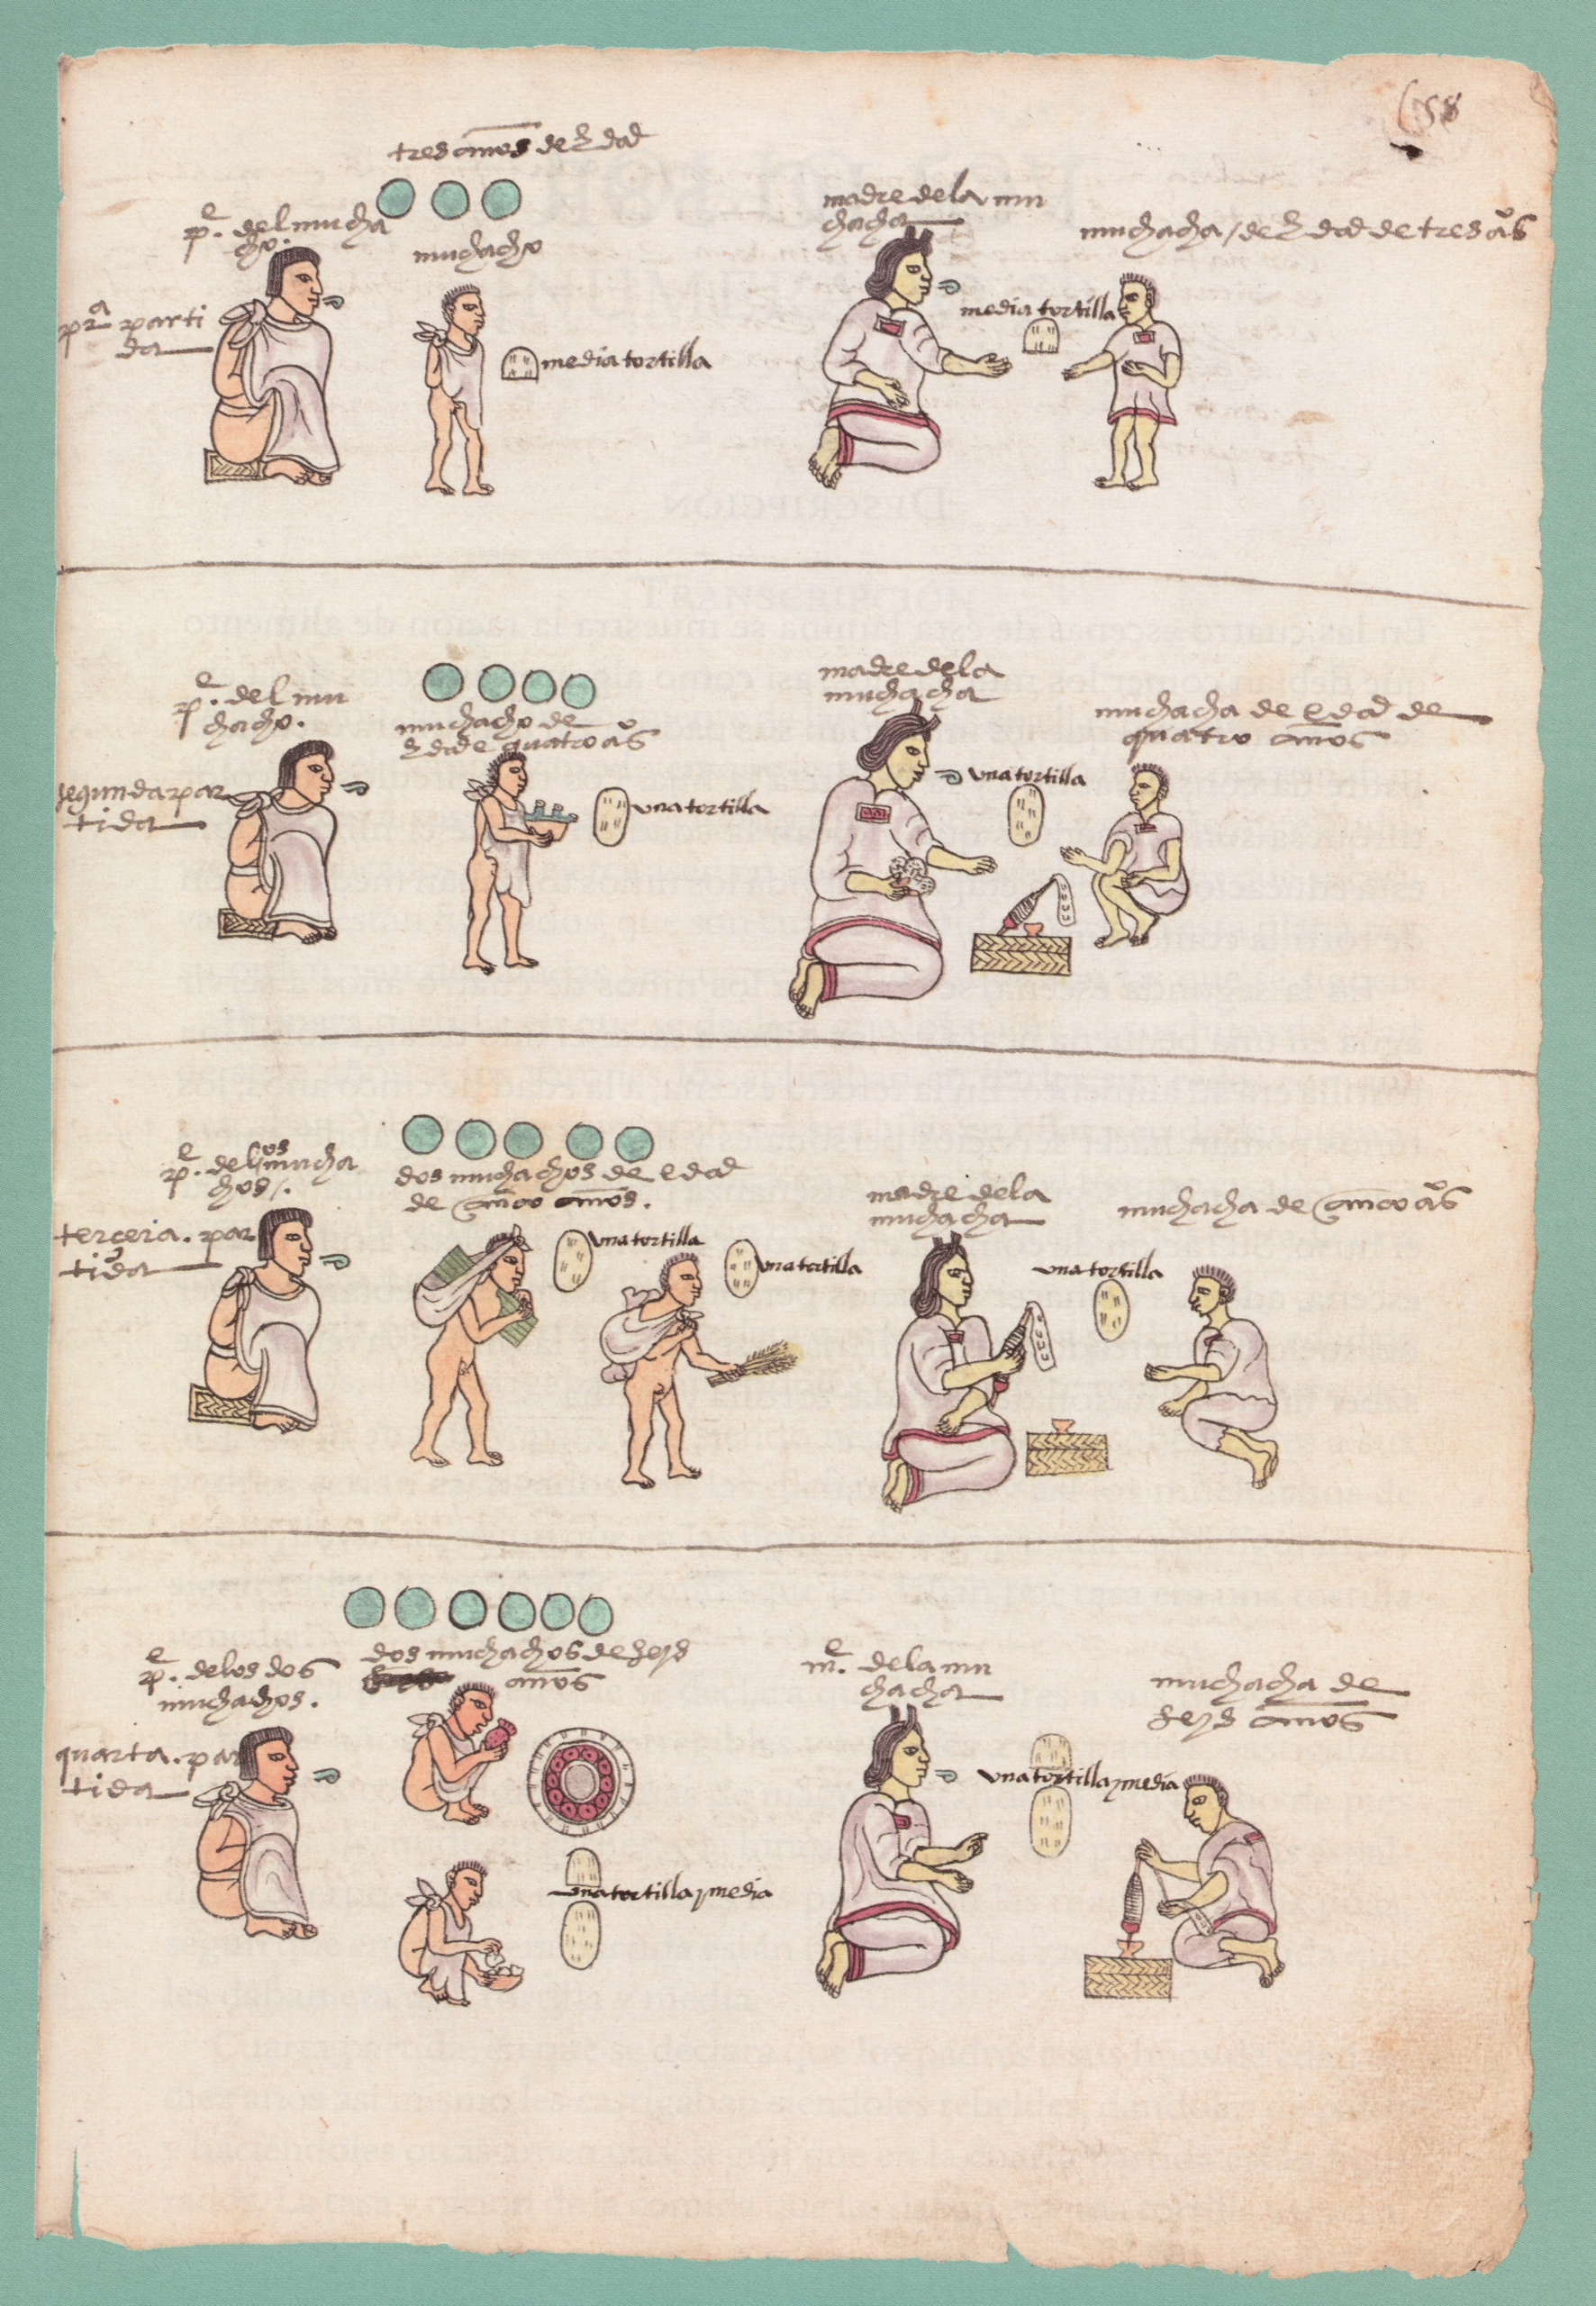 58
tres años de hedad
pe. del mucha
cho.
muchacho
pra parti
da
media tortilla
madre de la mu
chacha
muchacha / de hedad de tres aos
media tortilla
pe. del mu
chacho.
muchacho de
hedad de quatro aos
segunda par
tida
una tortilla
madre de la
muchacha
muchacha de edad de
quatro años
una tortilla
pe. de los mucha
chos /.
dos muchachos de edad
de cinco años.
tercera. par
tida
una tortilla
una tortilla
madre de la
muchacha
muchacha de cinco aos
una tortilla
pe. de los dos
muchachos.
dos muchachos de seys
años
quarta. par
tida
una tortilla y media
me. de la mu
chacha
muchacha de
seys años
una tortilla y media
DESCRIPCIÓN
En las cuatro escenas de esta lámina se muestra la ración de alimento